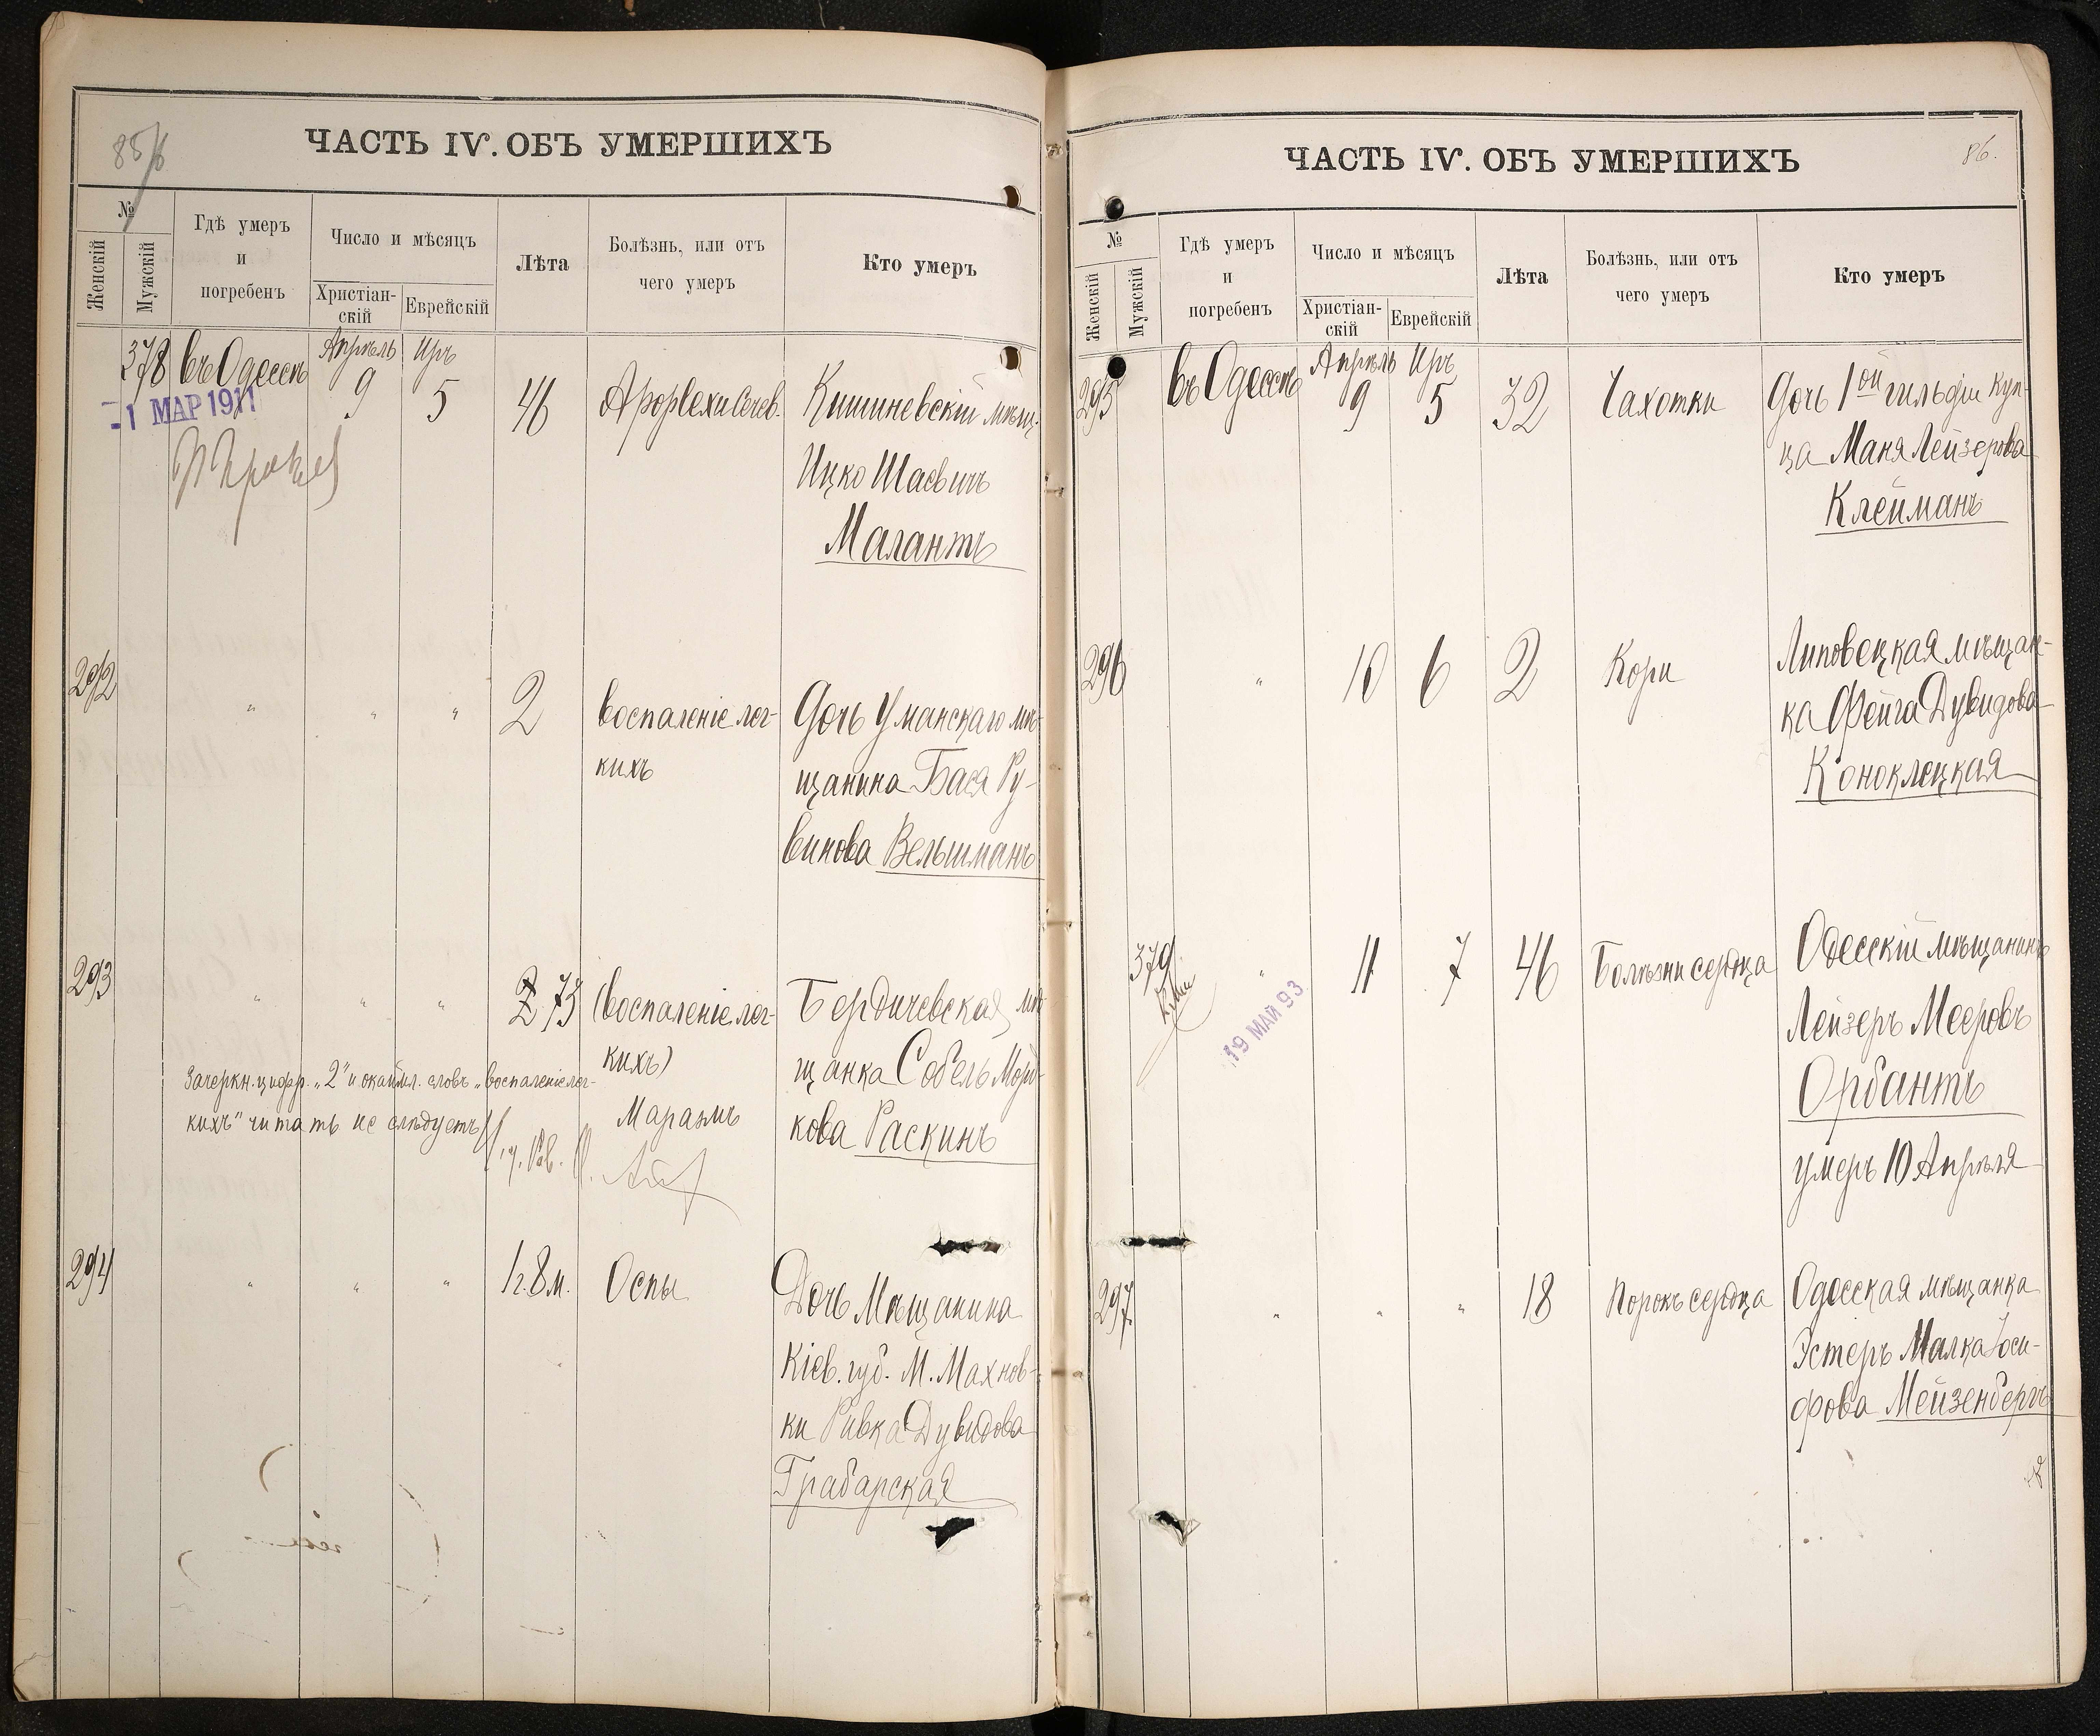 85/6
ЧАСТЬ IV. ОБЪ УМЕРШИХЪ
№
Женскій
Мужскій
Гдѣ умеръ
и
погребенъ
Число и мѣсяцъ
Христіан-
скій
Еврейскій
Лѣта
Болѣзнь, или отъ
чего умеръ
Кто умеръ
378 въ Одессѣ Апрѣль 9 Иръ 5 46
-1 МАР 1911
Кишиневскій мѣщ.
Ицко Шаевичъ
Малантъ
292 " " " 2 воспаленіе лег-
кихъ
Дочь Уманскаго мѣ-
щанина Бася Ру-
винова Вельшманъ
293 " " " 2 75 (воспаленіе лег-
кихъ)
Маразмъ
Бердичевская мѣ-
щанка Собель Морд-
кова Раскинъ
Зачеркн. цифр. „2" и окаймл. словъ „воспаленіе лег-
кихъ" читать не слѣдуетъ
294 " " " 1 г. 8 м. Оспы
Дочь Мѣщанина
Кіев. губ. М. Махнов-
ки Ривка Дувидова
Грабарская
86.
ЧАСТЬ IV. ОБЪ УМЕРШИХЪ
№
Женскій
Мужскій
Гдѣ умеръ
и
погребенъ
Число и мѣсяцъ
Христіан-
скій
Еврейскій
Лѣта
Болѣзнь, или отъ
чего умеръ
Кто умеръ
295 въ Одессѣ Апрѣль 9 Иръ 5 32 Чахотки
Дочь 1ой гильдіи куп-
ца Маня Лейзерова
Клейманъ
296 " 10 6 2 Кори
Липовецкая мѣщан-
ка Фейга Дувидова
Коноклецкая
379 " 11 7 46 Болѣзни сердца
19 МАЙ 93
Одесскій мѣщанинъ
Лейзеръ Мееровъ
Орбантъ
умеръ 10 Апрѣля
297 " " " 18 Порокъ сердца
Одесская мѣщанка
Эстеръ Малка Іоси-
фова Мейзенбергъ